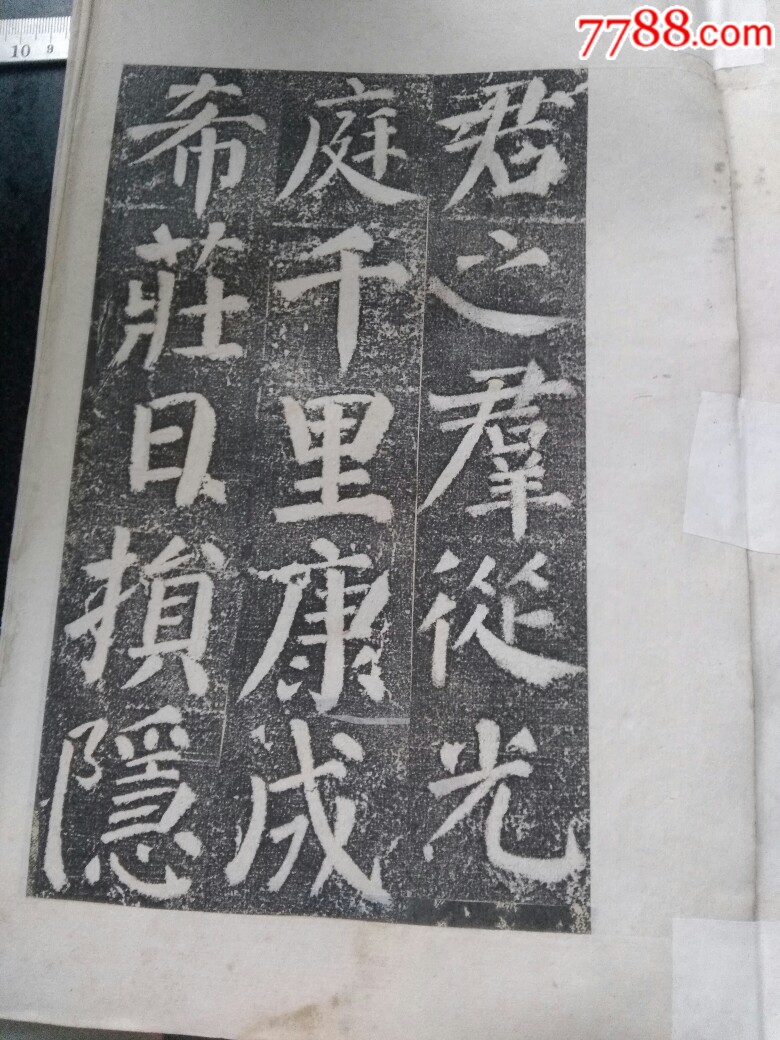 君之羣從光
庭千里康成
希莊日損隱
7788.com
10 9